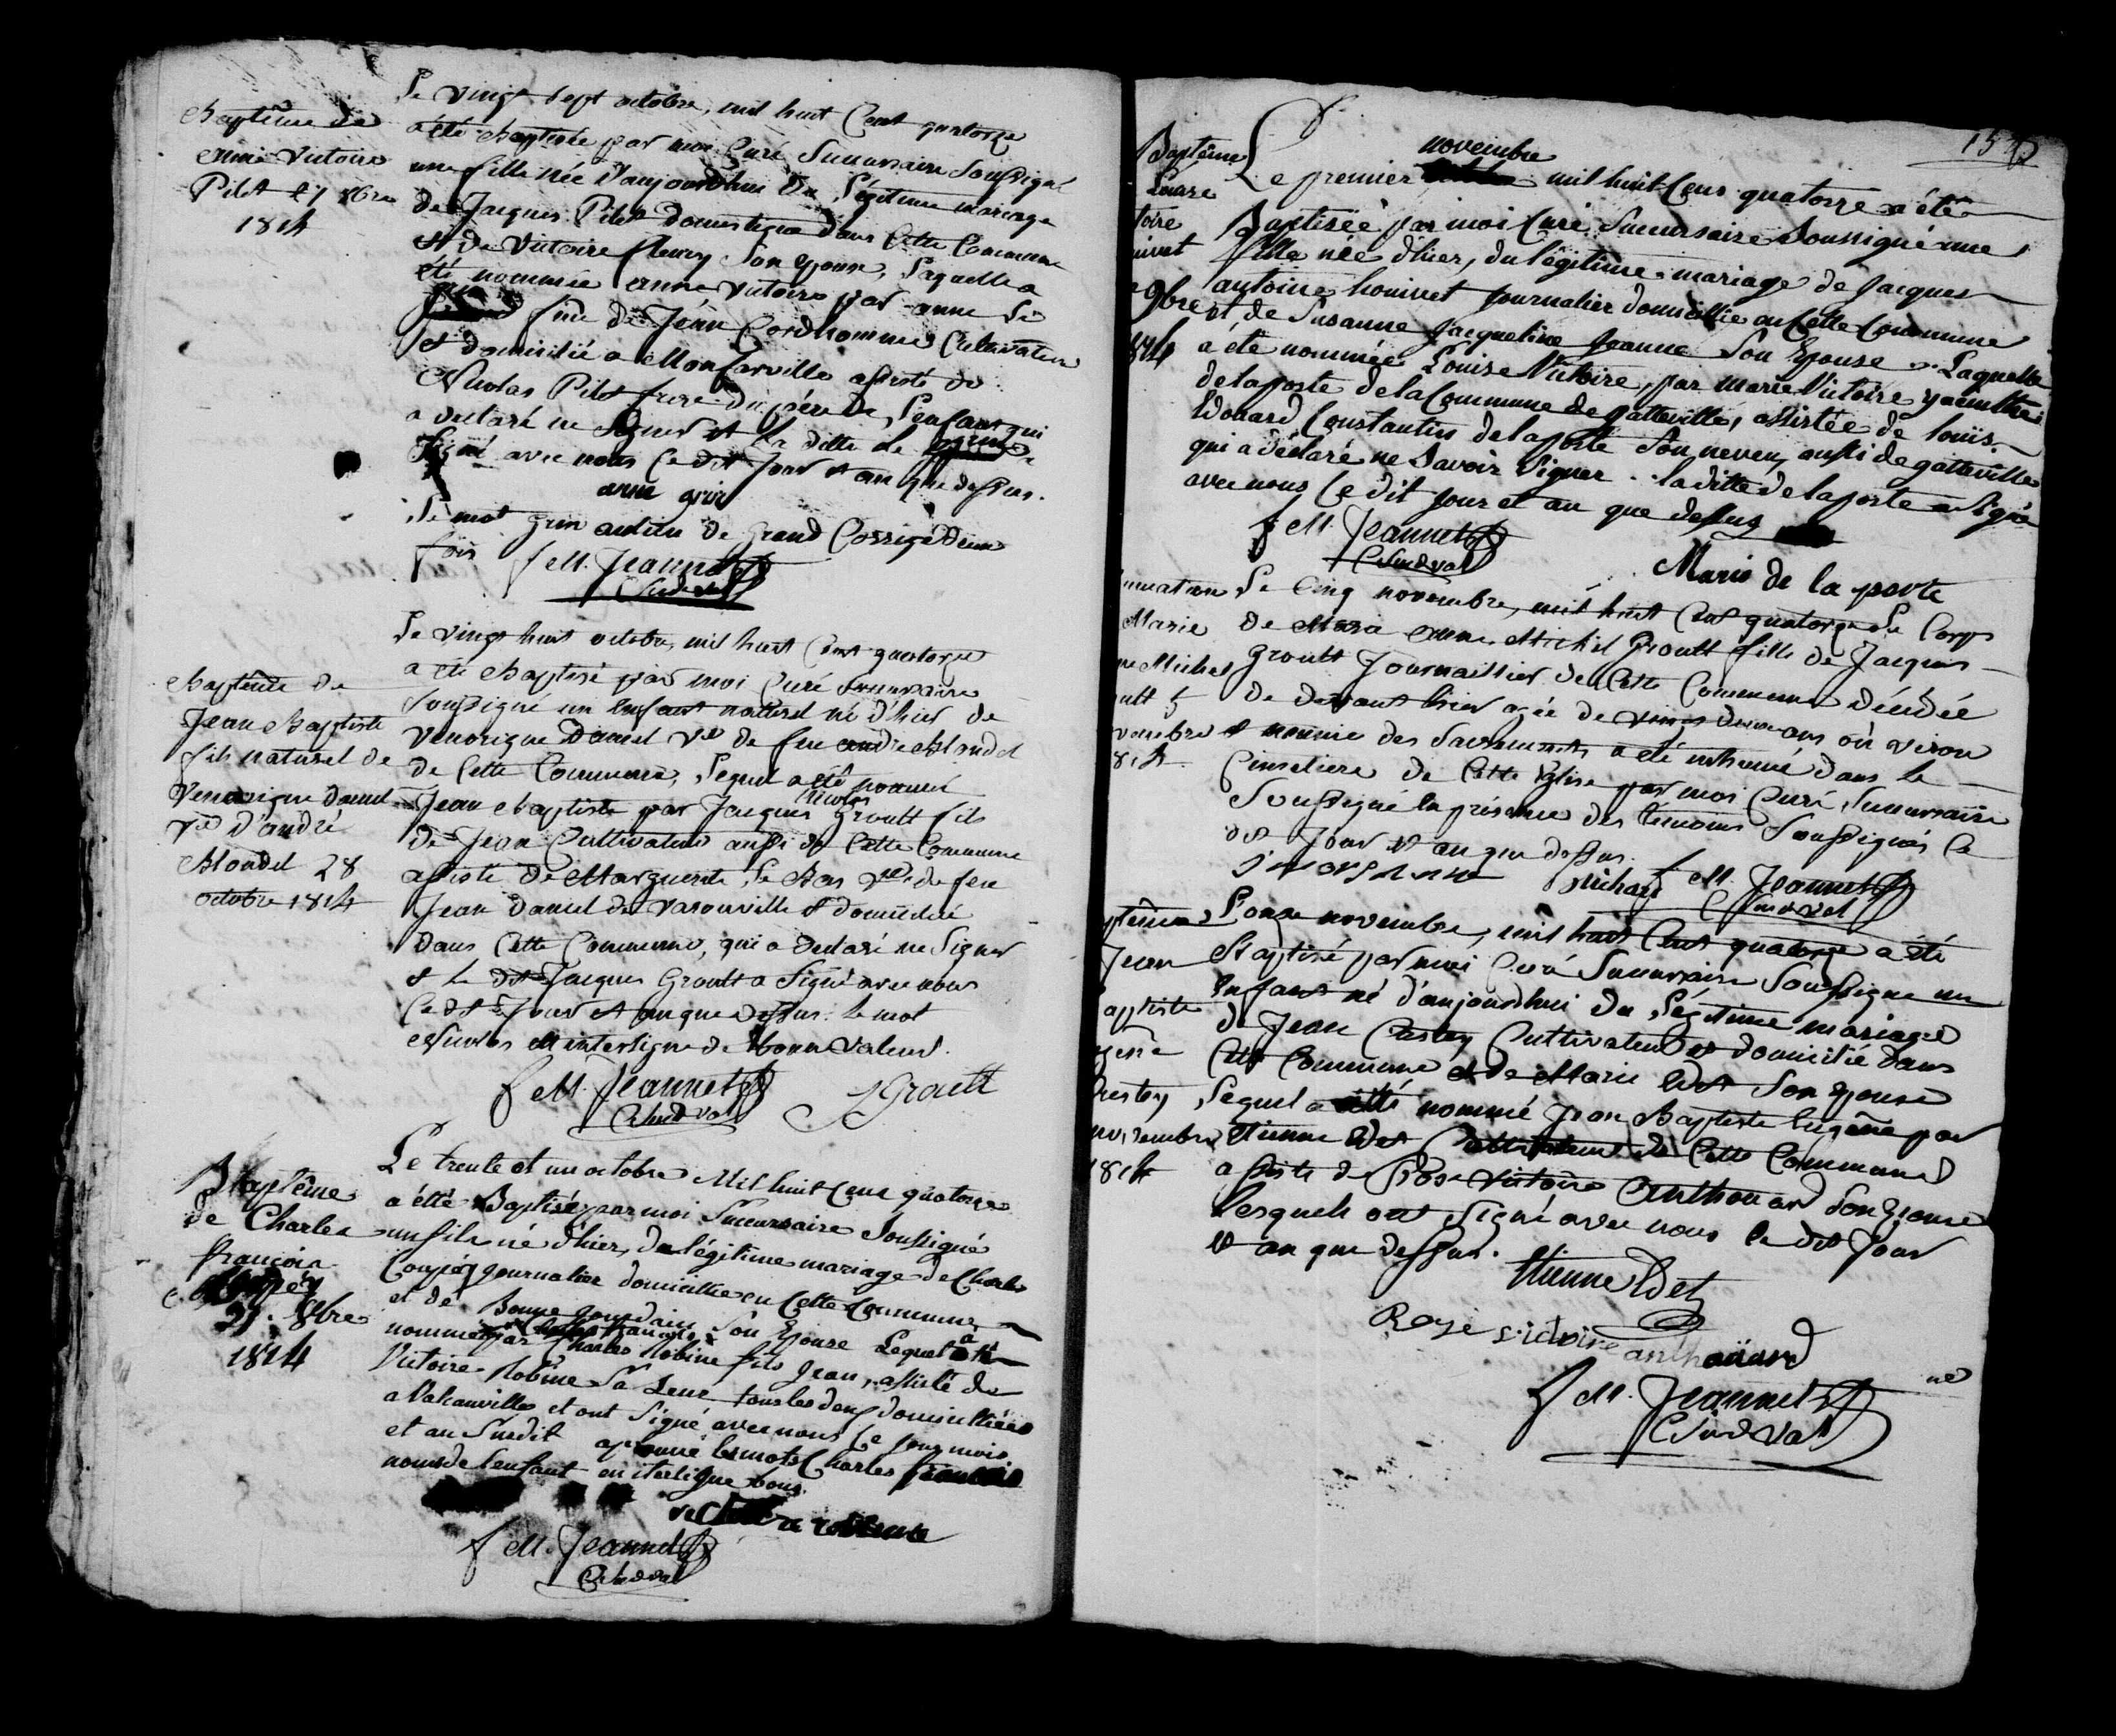 Baptême de
anne Victoire
Pilet 27 8bre
1814
Le vingt sept octobre, mil huit Cent quatorze
a été Baptisée par moi Curé Succursaire Soussigné
une fille née d'aujourdhui du Légitime mariage
de Jacques Pilet domestique dans Cette Commune
et de Victoire fleury Son épouse, Laquelle a
été nommée anne Victoire par anne le
fme de Jean Cordhomme Cultivateur
et domicilié a Monfarville assisté de
Nicolas Pilet frere du père de l'enfant qui
a déclaré ne Signer et la ditte le
Signé avec nous Ce dit jour et an que dessus.
anne grin
Le mot grin aulieu de grand Corrigé deux
fois f M. Jeannet
C Sud val
Baptême de
Jean Baptiste
fils naturel de
Venorique Daniel
Ve d'andré
Blondel 28
octobre 1814
Le vingt huit octobre, mil huit Cent quatorze
a été Baptisé par moi Curé Succursaire
Soussigné un enfant naturel né d'hier de
Venorique Daniel Ve de feu andre Blondel
de Cette Commune, Lequel a été nommé
Nicolas
Jean Baptiste par Jacques Groult fils
de Jean Cultivateur aussi de Cette Commune
assisté de Marguerite le Bas Ve de feu
Jean Daniel de Varouville et domiciliée
dans Cette Commune, qui a déclaré ne Signer
et le dit Jacques Groult a Signé avec nous
Ce dit Jour et an que dessus. Le mot
Nicolas en interligne de Bonne Valeur.
f M. Jeannet
C Sud val
Groult
Baptême
de Charles
françois
31. 8bre
1814
Le trente et un octobre Mil huit Cens quatorze
a été Baptisé par moi Succursaire Soussigné
un fils né d'hier, du légitime mariage de Charles
journalier domicilié en Cette Commune
et de Bonne Jourdain Son Epouse Lequel a été
Charles françois
nommé par Charles Nobine fils Jean, assisté de
Victoire Nobine Sa Seur tous les deux domicilliées
a Valcanville et ont Signé avec nous Ce jour mois
et an Susdit approuvé les mots Charles françois
noms de l'enfant en interligne bons.
f M. Jeannet
C Sud val
Baptême
Louise
toire
9bre
814
novembre
Le premier mil huit Cens quatorze a été
Baptisée par moi Curé Succursaire Soussigné une
fille née d'hier, du légitime mariage de Jacques
antoine houivet Journalier domicillié en Cette Commune
et de Susanne Jacqueline Jeanne Son Epouse Laquelle
a été nommée Louise Victoire, par marie Victoire yacinthe
delaposte de la Commune de gatteville, assistée de louis
Edouard Constantin delaposte Son neveu, aussi de gatteville
qui a déclaré ne Savoir Signer. la ditte delaposte a Signé
avec nous Ce dit jour et an que dessus
f M. Jeannet
C Sud val
Marie de la porte
Marie
Michel
ult 5
vembre
814
Le Cinq novembre, mil huit Cent quatorze le Corps
de Marie anne Michel Groult fille de Jacques
Groult Journaillier de Cette Commune décédée
de devant hier agée de vingt ans où viron
et munie des Sacrements a été inhumé dans le
Cimetiere de Cette Eglise par moi Curé Succursaire
Soussigné en présence des témoins Soussignés Ce
dit Jour et an que dessus.
f M. Jeannet
C Sud val
Jean
aptiste
novembre
1814
L'onze novembre, mil huit Cent quatorze a été
Baptisé par moi Curé Succursaire Soussigné un
Enfant né d'aujourdhui du Légitime mariage
de Jean Restey Cultivateur et domicilié dans
Cette Commune et de Marie Edet Son épouse
Lequel a été nommé Jean Baptiste Eugene par
Etienne Edet Cultivateur de Cette Commune
assisté de Rose Victoire Anthouard Son Epouse
Lesquels ont Signé avec nous le dit Jour
et an que dessus.
Etienne Edet
Rose victoire anthoüard
f M. Jeannet
C Sud Val